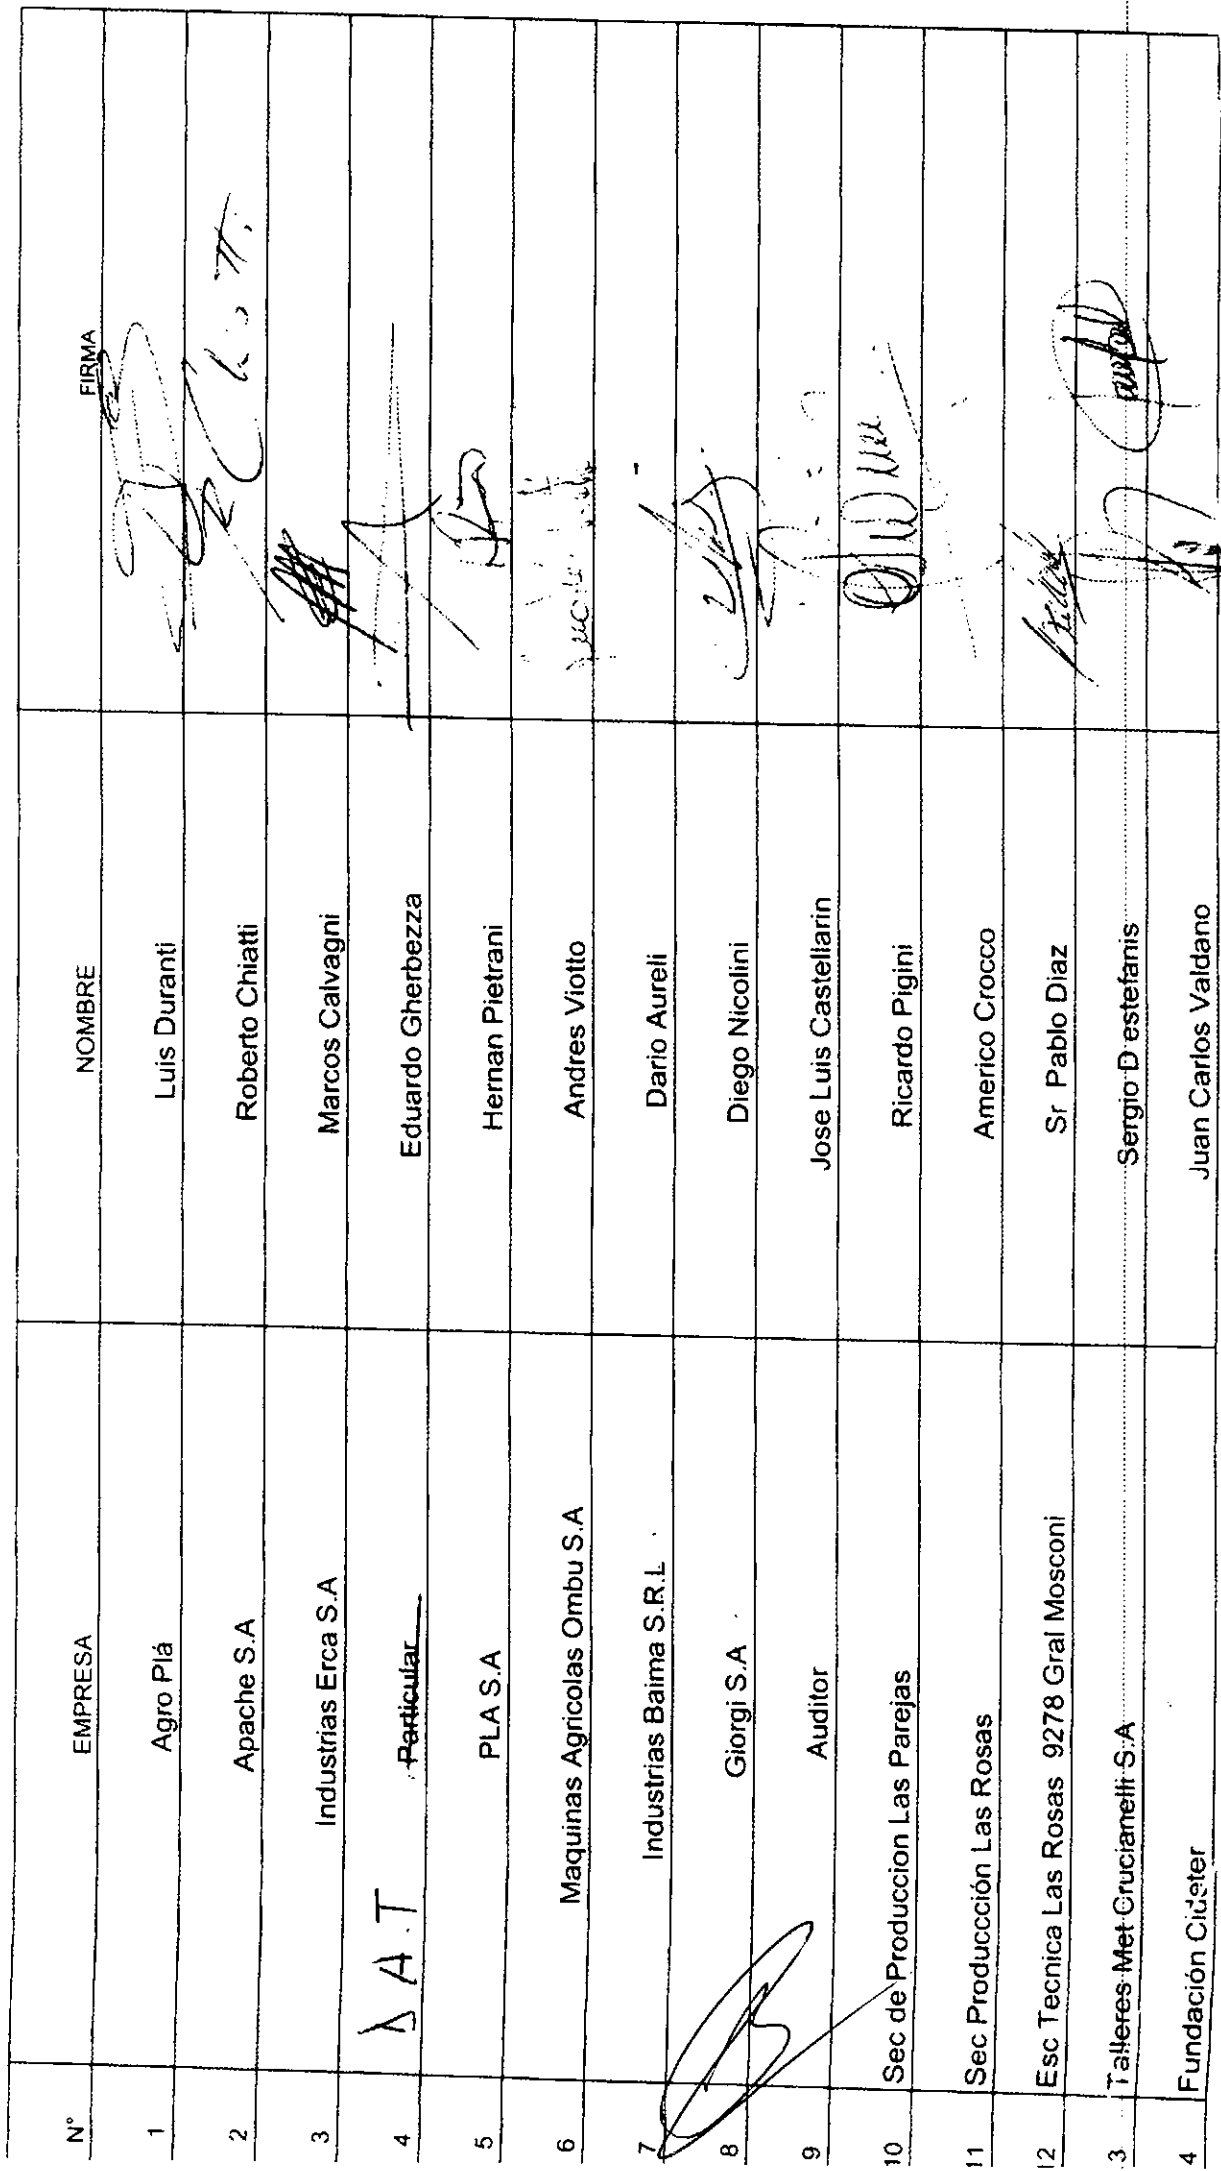 N° EMPRESA NOMBRE FIRMA
1 Agro Plá Luis Duranti
2 Apache S.A Roberto Chiatti
3 Industrias Erca S.A Marcos Calvagni
4 A.T Particular Eduardo Gherbezza
5 PLA S.A Hernan Pietrani
6 Maquinas Agricolas Ombu S.A Andres Viotto
7 Industrias Baima S.R.L Dario Aureli
8 Giorgi S.A Diego Nicolini
9 Auditor Jose Luis Castellarin
10 Sec de Produccion Las Parejas Ricardo Pigini
11 Sec Produccción Las Rosas Americo Crocco
12 Esc Tecnica Las Rosas 9278 Gral Mosconi Sr Pablo Diaz
3 Talleres Met Crucianelli S.A Sergio D estefanis
4 Fundación Cideter Juan Carlos Valdano